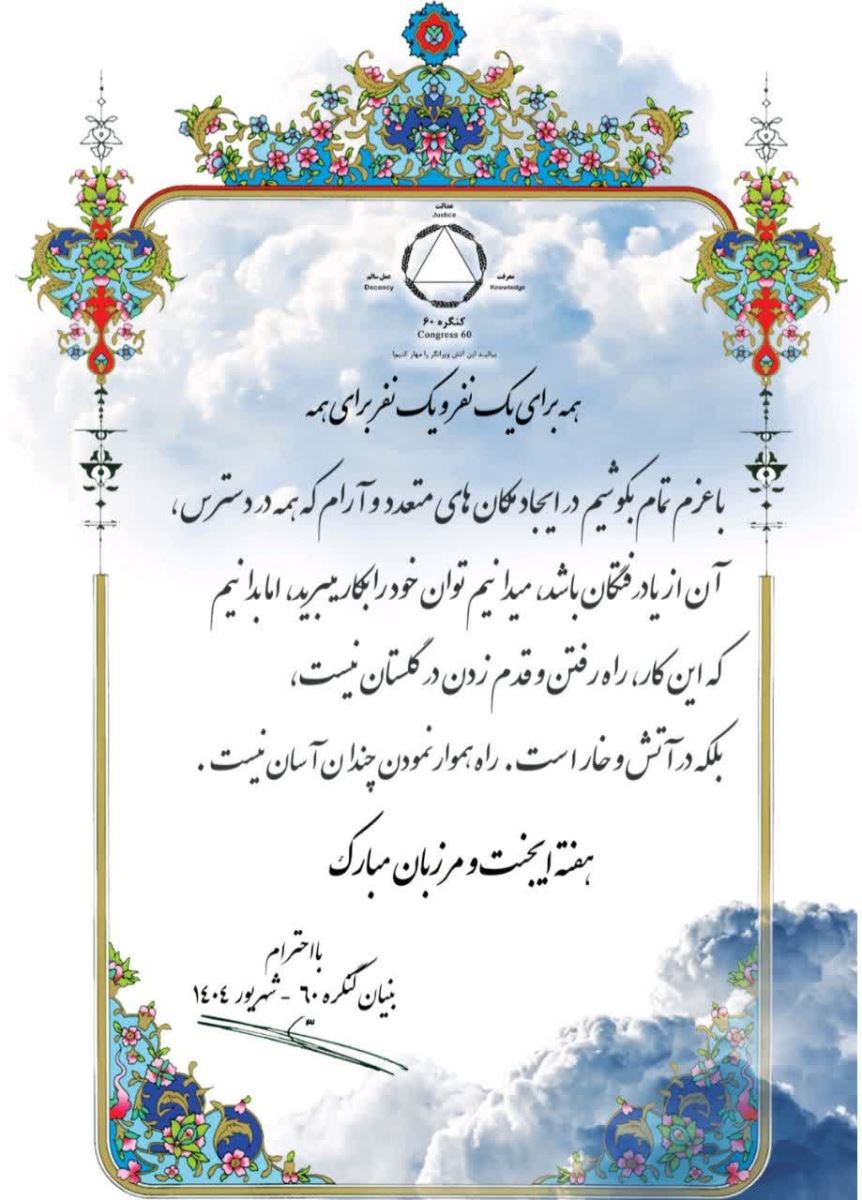 عدالت
Justice
عمل سالم
Decency
معرفت
Knowledge
کنگره ۶۰
Congress 60
بیائید این آتش ویرانگر را مهار کنیم!
همه برای یک نفر و یک نفر برای همه
با عزم تمام بکوشیم در ایجاد مکان های متعدد و آرام که همه در دسترس،
آن از یاد رفتگان باشد، میدانیم توان خود را بکار میبرید، اما بدانیم
که این کار، راه رفتن و قدم زدن در گلستان نیست،
بلکه در آتش و خار است. راه هموار نمودن چندان آسان نیست.
هفته ایجنت و مرزبان مبارک
با احترام
بنیان کنگره ۶۰ - شهریور ۱۴۰۴